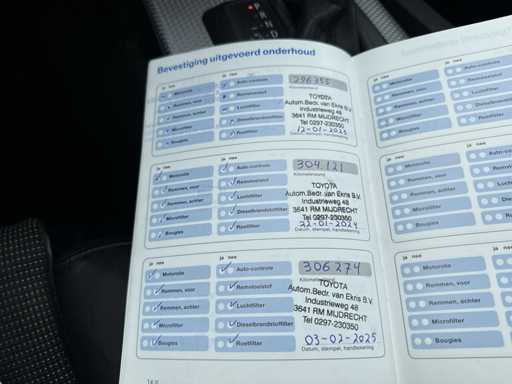 P
R
N
D
Bevestiging uitgevoerd onderhoud
ja nee
ja nee
Motorolie
Auto-controle
296355
Remmen, voor
Remvloeistof
Kilometerstand
Remmen, achter
Luchtfilter
TOYOTA
Autom.Bedr. van Ekris B.V.
Industrieweg 48
3641 RM MIJDRECHT
Tel 0297-230350
Microfilter
Dieselbrandstoffilter
Bougies
Roetfilter
12-01-2023
ja nee
ja nee
Motorolie
Auto-controle
304.121
Remmen, voor
Remvloeistof
Kilometerstand
Remmen, achter
Luchtfilter
TOYOTA
Autom.Bedr. van Ekris B.V.
Industrieweg 48
3641 RM MIJDRECHT
Tel 0297-230350
Microfilter
Dieselbrandstoffilter
Bougies
Roetfilter
22-01-2024
Datum, stempel, handtekening
ja nee
ja nee
Motorolie
Auto-controle
306274
Remmen, voor
Remvloeistof
Kilometerstand
Remmen, achter
Luchtfilter
TOYOTA
Autom.Bedr. van Ekris B.V.
Industrieweg 48
3641 RM MIJDRECHT
Tel 0297-230350
Microfilter
Dieselbrandstoffilter
Bougies
Roetfilter
03-02-2025
Datum, stempel, handtekening
ja nee
ja nee
Motorolie
Auto-controle
Remmen, voor
Remvloeistof
Remmen, achter
Luchtfilter
Microfilter
Bougies
Roetfilter
ja nee
ja nee
Motorolie
Remmen, voor
Remmen, achter
Microfilter
Bougies
ja nee
ja nee
Motorolie
Remmen, voor
Remmen, achter
Microfilter
Bougies